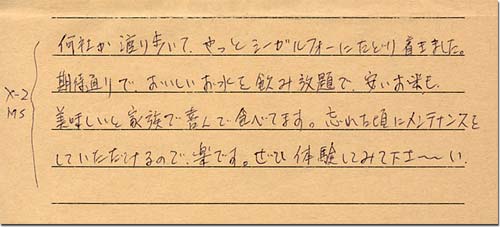 何社か渡り歩いて、やっとシーガルフォーにたどり着きました。
X-2
MS
期待通りで、おいしいお水を飲み放題で、安いお米も、
美味しいと家族で喜んで食べてます。忘れた頃にメンテナンスを
していただけるので、楽です。ぜひ体験してみて下さ〜〜い。